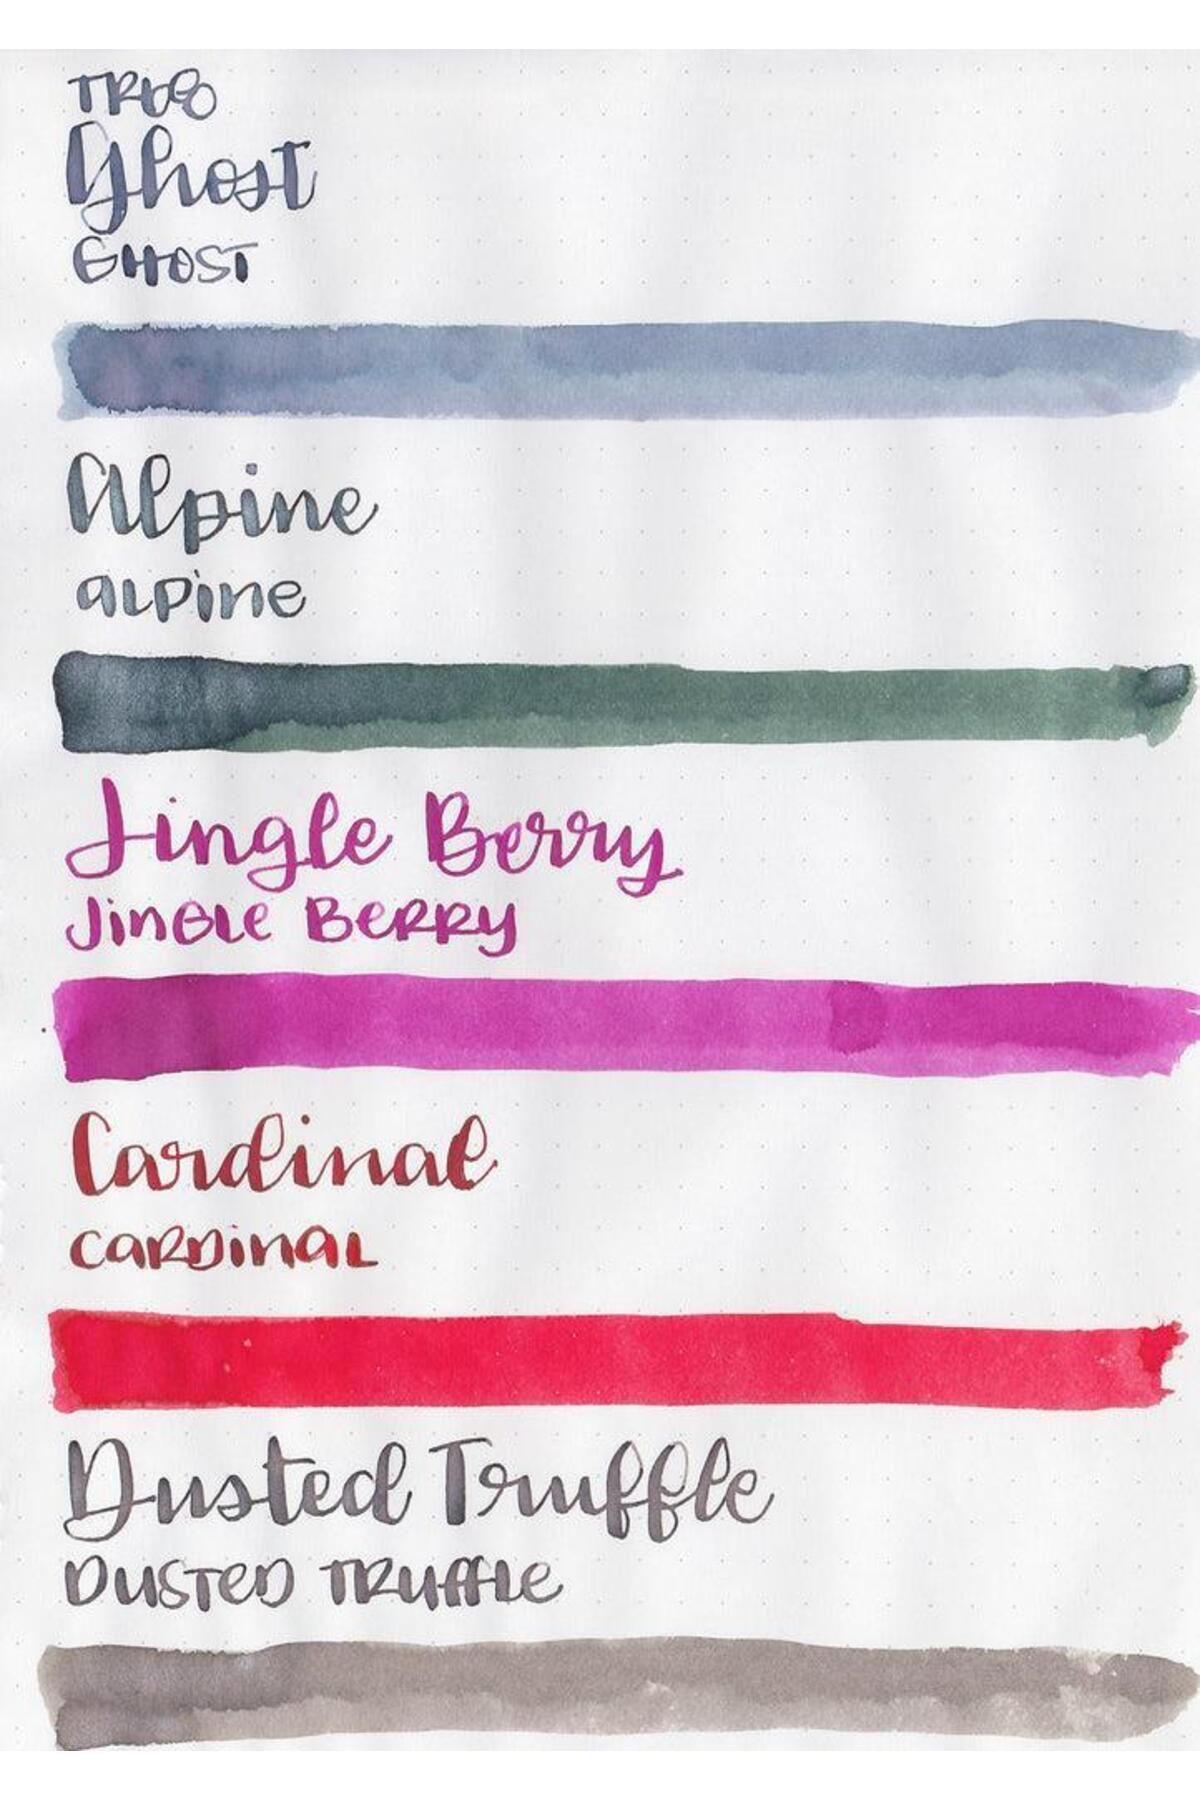 Ghost
GHOST
Alpine
alpine
Jingle Berry
Jingle Berry
Cardinal
Cardinal
Dusted Truffle
Dusted Truffle